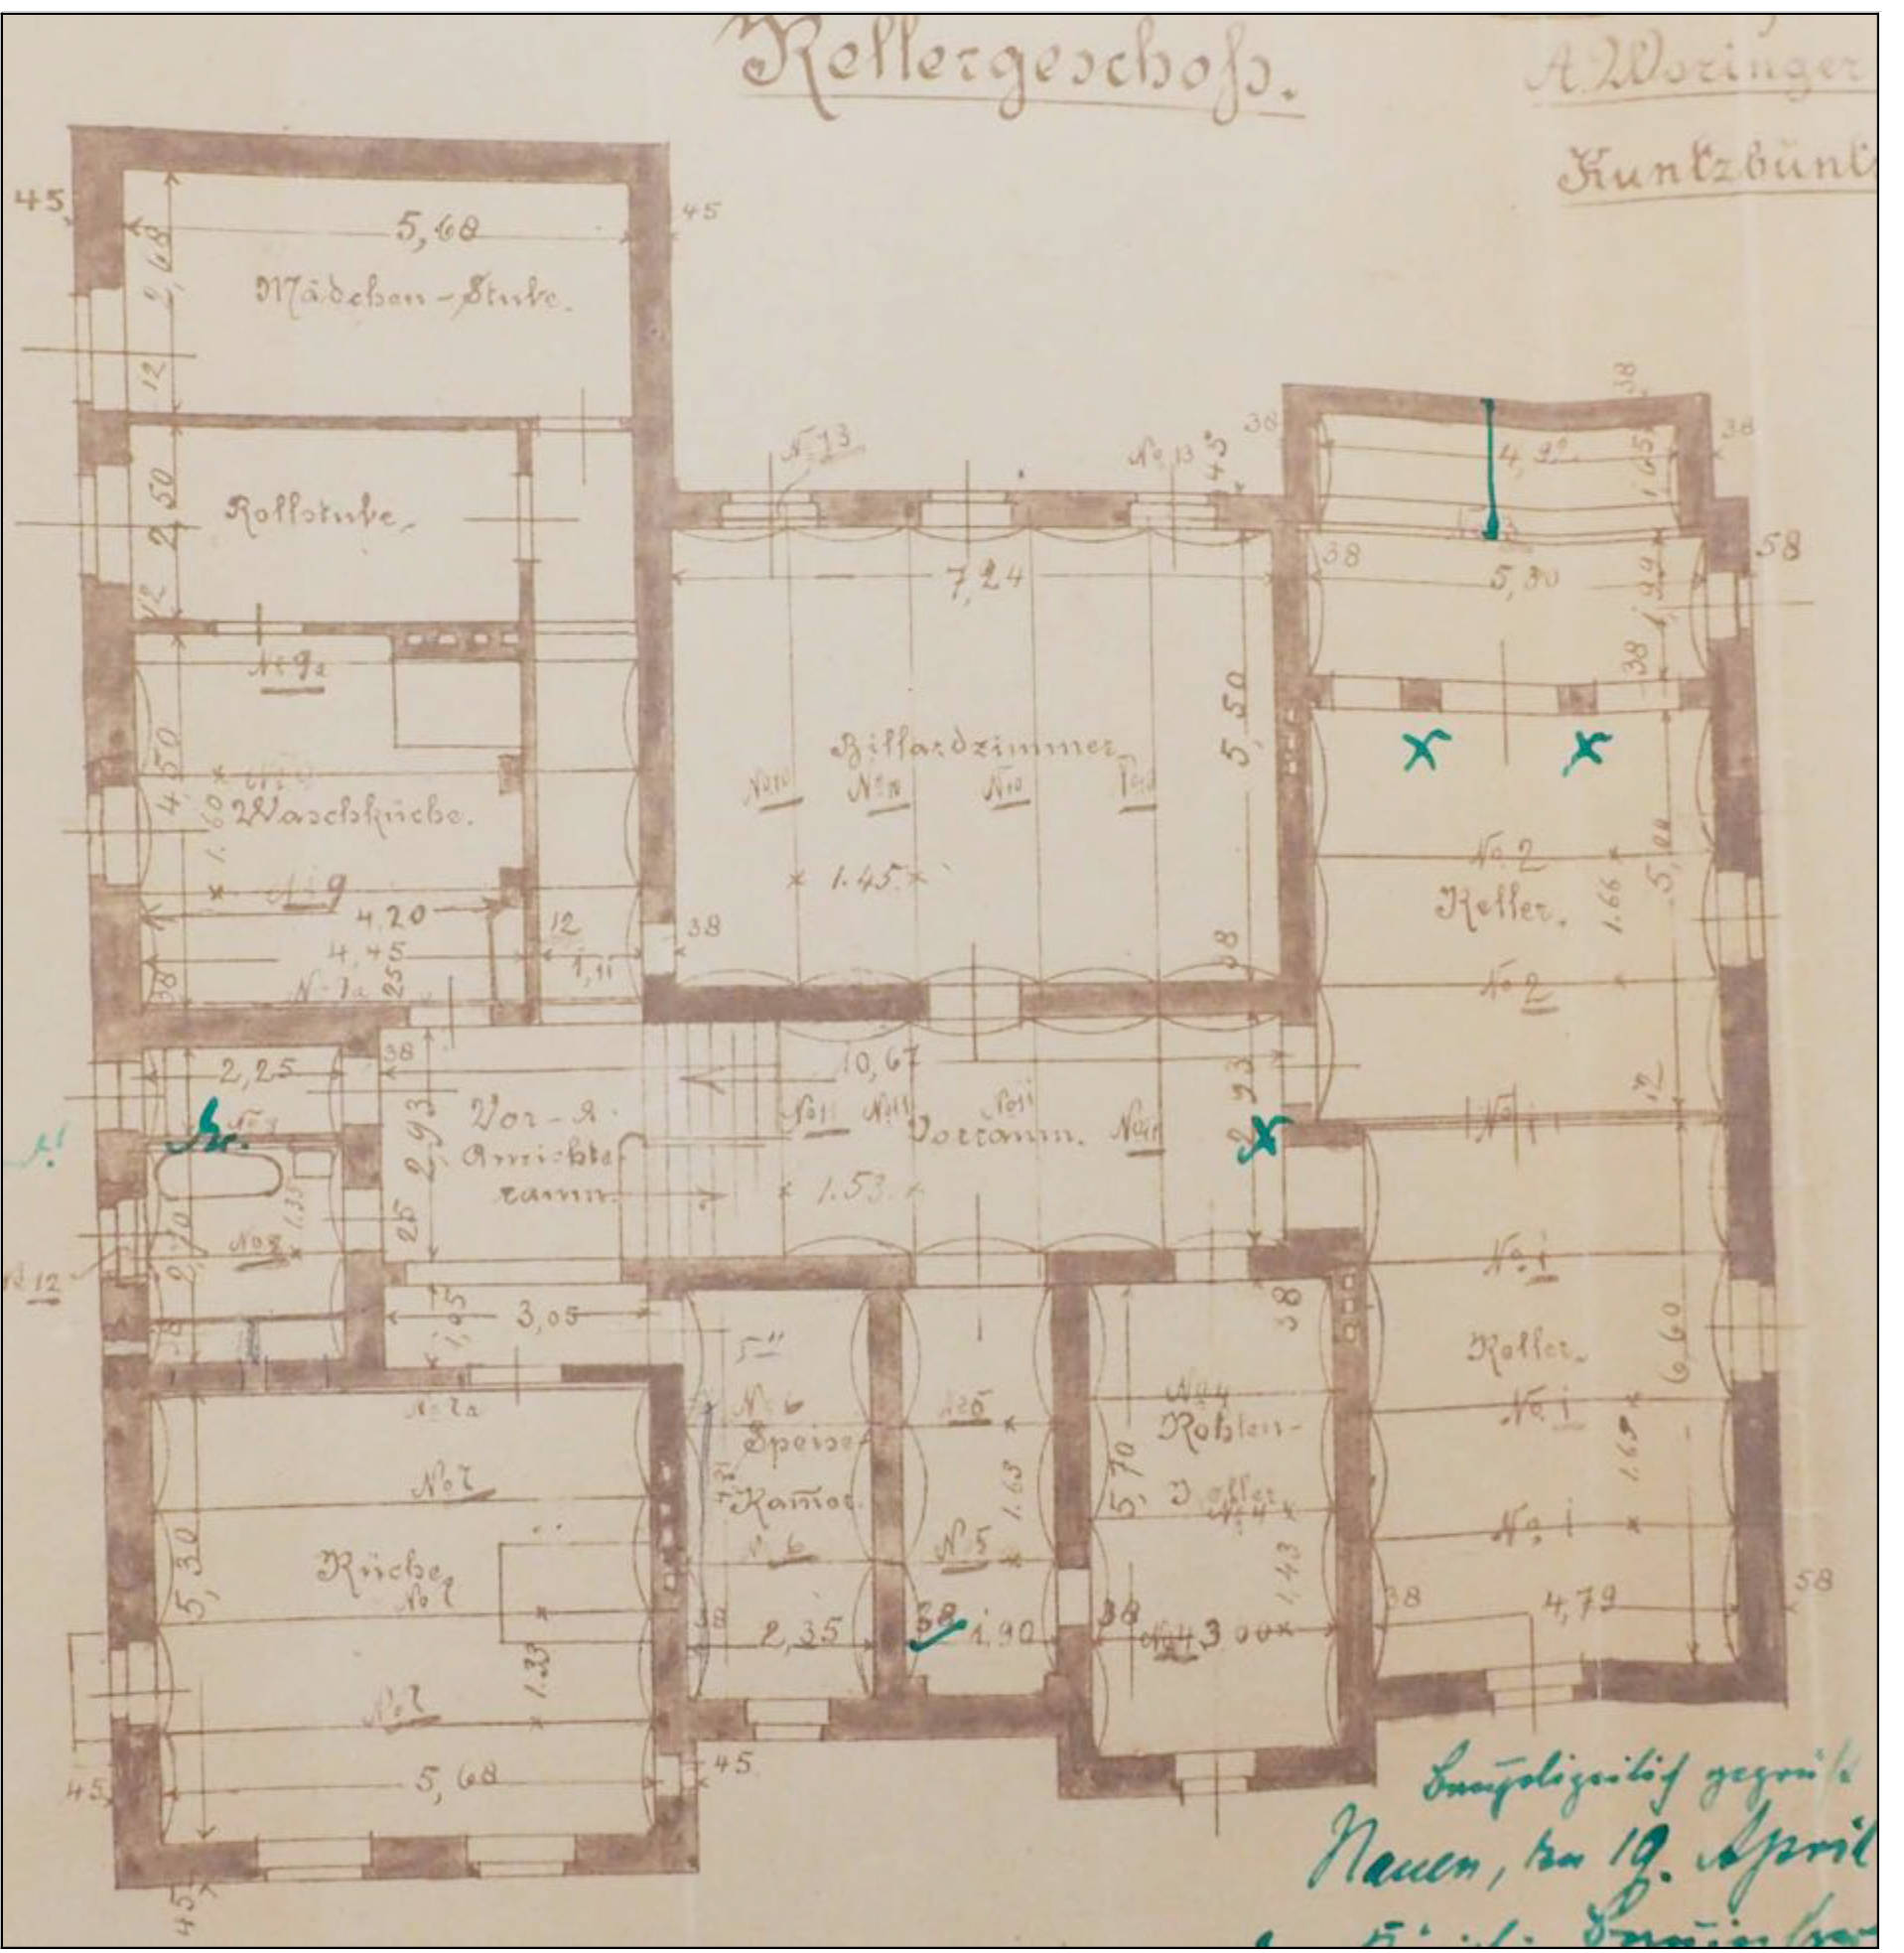 Kellergeschoß.
A. Woringer
45
45
5,68
2,68
Mädchen-Stube.
12
38
38
38
No 13
No 13
45
4,22
1,65
2,50
Rollstube.
12
7,24
38
5,30
58
1,99
38
No 9a
4,50
1.60
Waschküche.
No 9
4,20
4,45
38
25
12
1,11
38
Billardzimmer.
No 10 No 10 No 10 No 10
1.45
5,50
38
No 2
Keller.
1.66
No 2
12
2,25
38
10,67
2,93
2,93
Vor- &
Anrichte
raum.
25
No 11 No 11 No 11 No 11
Vorraum.
1.53.
No 1
No 8
1.35
No 12
38
3,05
38
No 1
Keller.
6,60
No 1
1.69
No 1
No 7a
No 7
Küche.
No 7
5,30
1.33
No 7
5,68
No 6
Speise
Kammer.
2,35
No 5
1.63
No 5
38
1,90
No 4
Kohlen-
Keller
No 4
5,70
1,43
38
No 4
3,00
38
4,79
58
45
45
45
Baupolizeilich geprüft
Nauen, den 19. April